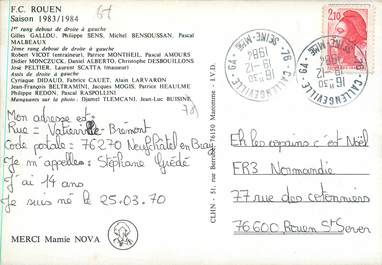 F.C. ROUEN
Saison 1983/1984
1er rang debout de droite à gauche
Gilles GALLOU, Philippe SENS, Michel BENSOUSSAN, Pascal
MALBEAUX
2ème rang debout de droite à gauche
Robert VICOT (entraineur), Patrice MONTHEIL, Pascal AMOURS
Didier MONCZUK, Daniel ALBERTO, Christophe DESBOUILLONS
José PELTIER, Scatta LAMANA (masseur)
Assis de droite à gauche
Cyriaque DIDAUD, Fabrice CAUET, Alain LARVARON
Jean-François BELTRAMINI, Jacques MOGIS, Patrice HEAULME
Philippe REDON, Pascal RASPOLLINI
Manquants sur la photo : Djamel TLEMCANI, Jean-Luc BUISINE
Mon adresse est:
Rue = Vatierville-Brémont
Code postale: 76270 Neufchâtel en Bray
Je m'appelles: Stéphane Guédé
J'ai 14 ans
Je suis né le 25.03.70
MERCI Mamie NOVA
CLHN - 51, rue 76150 Maromme - I.V.D.
76 - CALLENGEVILLE - GA -
SEINE-MME
19-12
1984
2,10
Eh les copains c'est Noël
FR3 Normandie
77 rue des cotonniers
76600 Rouen St Sever